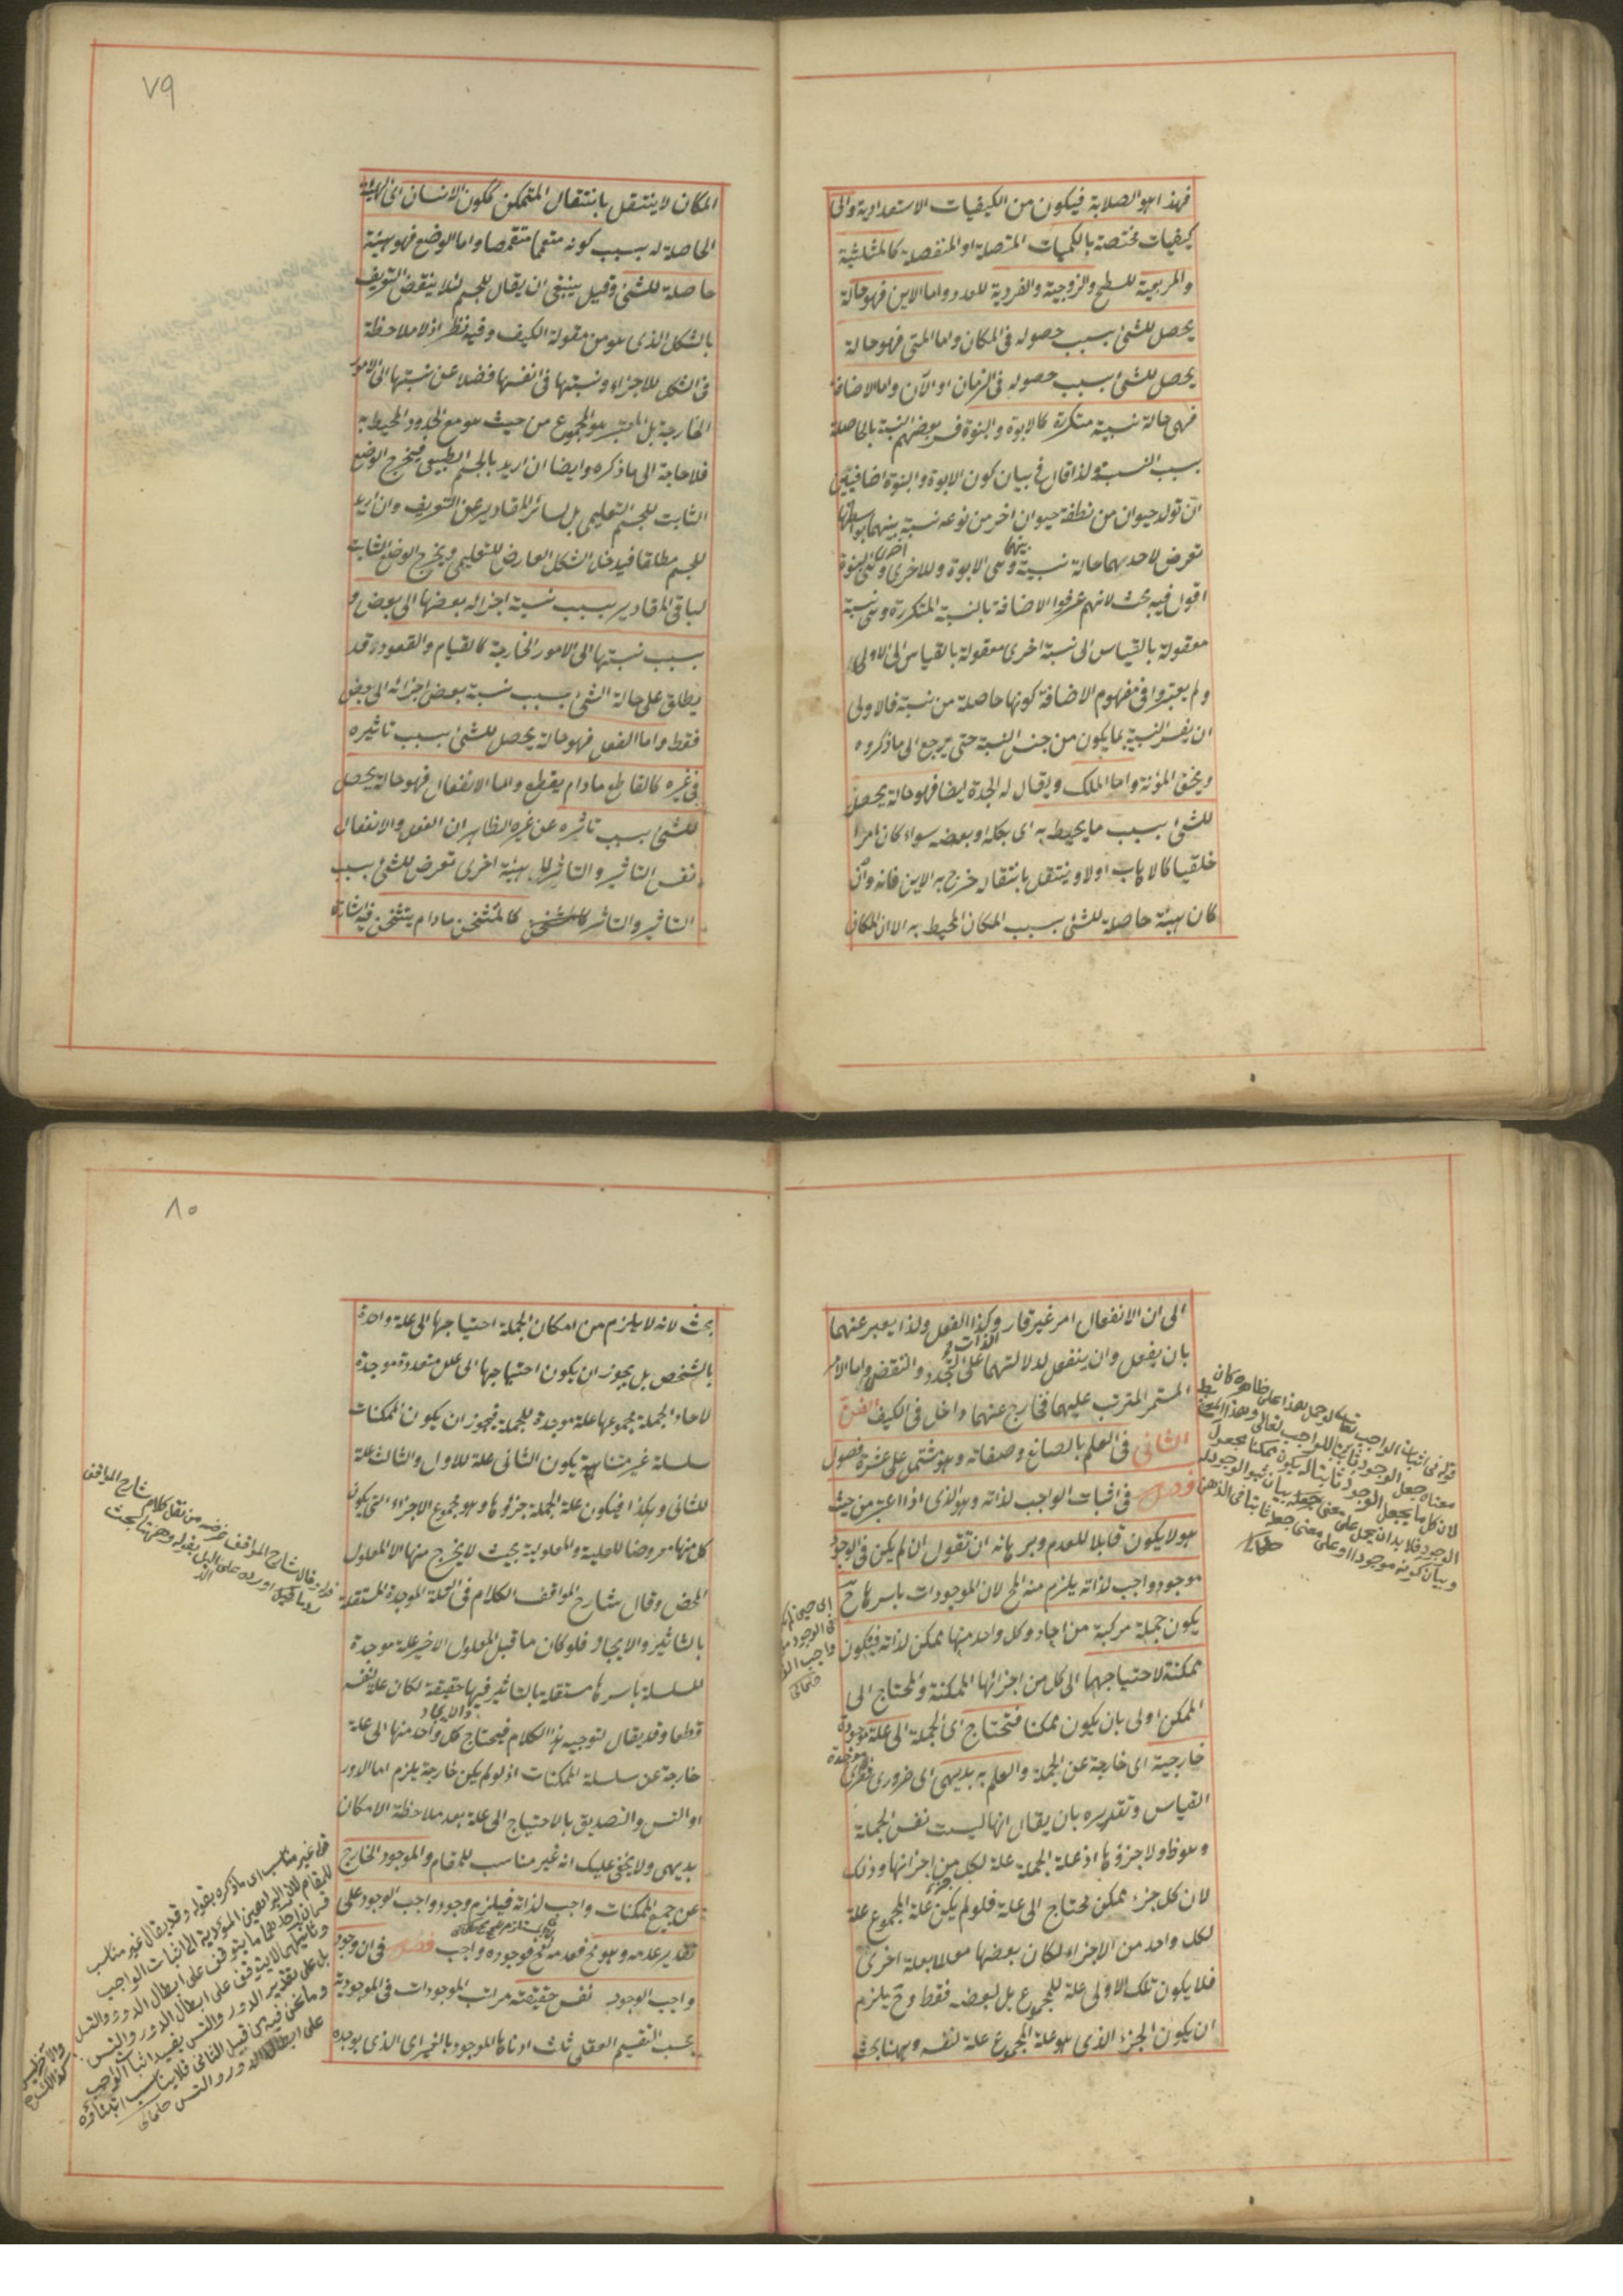 فهذا هو الصلابة فيكون من الكيفيات الاستعدادية والى
كيفيات مختصة بالكميات المتصلة او المنفصلة كالمثلثية
والمربعية للسطح والزوجية والفردية للعدد واما الاين فهو حالة
يحصل للشئ بسبب حصوله فى المكان واما المتى فهو حالة
يحصل للشئ بسبب حصوله فى الزمان او الآن واما الاضافة
فهى حالة نسبية متكررة كالابوة والبنوة فسر بعضهم النسبة بالحاصلة
بسبب النسبة ولذا قال فى بيان كون الابوة والبنوة اضافيتين
ان تولد حيوان من نطفة حيوان اخر من نوعه نسبة بينهما بواسطتها
تعرض لاحديهما حالة نسبية وهى الابوة وللاخرى اخرى وهى البنوة
اقول فيه بحث لانهم عرفوا الاضافة بالنسبة المتكررة وهى نسبة
معقولة بالقياس الى نسبة اخرى معقولة بالقياس الى الاولى
ولم يعتبروا فى مفهوم الاضافة كونها حاصلة من نسبة فالاولى
ان يفسر النسبية بما يكون من جنس النسبة حتى يرجع الى ما ذكروه
ويخف المؤنة واما الملك ويقال له الجدة ايضا فهو حالة يحصل
للشئ بسبب ما يحيط به اى بكله او بعضه سواء كان امرا
خلقيا كالاهاب اولا وينتقل بانتقاله خرج به الاين فانه وان
كان هيئة حاصلة للشئ بسبب المكان المحيط به الا ان المكان
٧٩
المكان لا ينتقل بانتقال المتمكن ككون الانسان اى الهيئة
الحاصلة له بسبب كونه متعمما متقمصا واما الوضع فهو هيئة
حاصلة للشئ وقيل ينبغى ان يقال للجسم لئلا ينتقض التعريف
بالشكل الذى هو من مقولة الكيف وفيه نظر اذ لا ملاحظة
فى الشكل للاجزاء ونسبتها فى انفسها فضلا عن نسبتها الى الامور
الخارجة بل المعتبر هو المجموع من حيث هو مع الحدود المحيط به
فلا حاجة الى ما ذكره وايضا ان اريد بالجسم الطبيعى فيخرج الوضع
الثابت للجسم التعليمى بل لسائر المقادير عن التعريف وان اريد
للجسم مطلقا فيدخل الشكل العارض للتعليمى ويخرج الوضع الثابت
لباقى المقادير بسبب نسبة اجزائه بعضها الى بعض و
بسبب نسبتها الى الامور الخارجة كالقيام والقعود وقد
يطلق على حالة الشئ بسبب نسبة بعض اجزائه الى بعض
فقط واما الفعل فهو حالة يحصل للشئ بسبب تاثيره
فى غيره كالقاطع مادام يقطع واما الانفعال فهو حالة يحصل
للشئ بسبب تاثره عن غيره الظاهر ان الفعل والانفعال
نفس التاثير والتاثر لا هيئة اخرى تعرض للشئ بسبب
التاثير والتاثر كالمتسخن مادام يتسخن فيه اشارة
الى ان الانفعال امر غير قار وكذا الفعل ولذا يعبر عنهما
بان يفعل وان ينفعل لدلالتهما على التجدد والتقضى واما الامر
المستمر المترتب عليهما فخارج عنهما داخل فى الكيف الفن
الثانى فى العلم بالصانع وصفاته وهو مشتمل على عشرة فصول
فصل فى اثبات الواجب لذاته وهو الذى اذا اعتبر من حيث
هو لا يكون قابلا للعدم وبرهانه ان تقول ان لم يكن فى الوجود
موجود واجب لذاته يلزم منه المح لان الموجودات باسرها ح
يكون جملة مركبة من احاد وكل واحد منها ممكن لذاته فيكون
ممكنة لاحتياجها الى كل من اجزائها الممكنة والمحتاج الى
الممكن اولى بان يكون ممكنا فتحتاج اى الجملة الى علة موجدة
خارجية اى خارجة عن الجملة والعلم به بديهى اى ضرورى فطرى
القياس وتقديره بان يقال انها ليست نفس الجملة
وهو ظ ولا جزؤها اذ علة الجملة علة لكل جزء من اجزائها وذلك
لان كل جزء ممكن محتاج الى علة فلو لم يكن علة المجموع علة
لكل واحد من الاجزاء لكان بعضها معللا بعلة اخرى
فلا يكون تلك الاولى علة للمجموع بل لبعضه فقط وح يلزم
ان يكون الجزء الذى هو علة المجموع علة لنفسه وههنا بحث
قوله فى اثبات الواجب لو حمل هذا على ظاهره كان
معناه جعل الوجود ثابتا للواجب تعالى وهذا المعنى
لان كل ما يجعل الوجود ثابتا له يكون ممكنا مجعول
الوجود فلا بد ان يحمل على معنى جعله بيان ثبوت الوجود له
وبيان كونه موجودا او على معنى جعله ثابتا فى الذهن
٨٠
بحث لانه لا يلزم من امكان الجملة احتياجها الى علة واحدة
بالشخص بل يجوز ان يكون احتياجها الى علل متعددة موجدة
لاحاد الجملة مجموعها علة موجدة للجملة فيجوز ان يكون الممكنات
سلسلة غير متناهية يكون الثانى علة للاول والثالث علة
للثانى وهكذا فيكون علة الجملة جزؤها وهو مجموع الاجزاء التى يكون
كل منها معروضا للعلية والمعلولية بحيث لا يخرج منها الا المعلول
المحض وقال شارح المواقف الكلام فى العلة الموجدة المستقلة
بالتاثير والايجاد فلو كان ما قبل المعلول الاخير علة موجدة
للسلسلة باسرها مستقلة بالتاثير فيها حقيقة لكان علة لنفسه
قطعا وقد يقال لتوجيه هذا الكلام فيحتاج كل واحد منها الى علة
خارجة عن سلسلة الممكنات اذ لو لم يكن خارجة يلزم اما الدور
او التس والتصديق بالاحتياج الى علة بعد ملاحظة الامكان
بديهى ولا يخفى عليك انه غير مناسب للمقام والموجود الخارج
عن جميع الممكنات واجب لذاته فيلزم وجود واجب الوجود على
تقدير عدمه وهو مح فعدمه مح فوجوده واجب فصل فى ان وجود
واجب الوجود نفس حقيقته مراتب الموجودات فى الموجودية
بحسب التقسيم العقلى ثلث ادناها الموجود بالغير اى الذى يوجده
قوله وقال شارح المواقف غرضه من نقل كلام شارح المواقف
قوله غير مناسب اى ما ذكره بقوله وقد يقال غير مناسب
للمقام لان البراهين المؤدية الى اثبات الواجب
قسمان احدهما ما يتوقف على ابطال الدور والتسلسل
وثانيهما لا يتوقف على ابطال الدور والتس
بل على تقدير الدور والتس يفيد اثبات الواجب
وما نحن فيه من قبيل الثانى فلا يناسب ابتناؤه
على ابطال الدور والتس